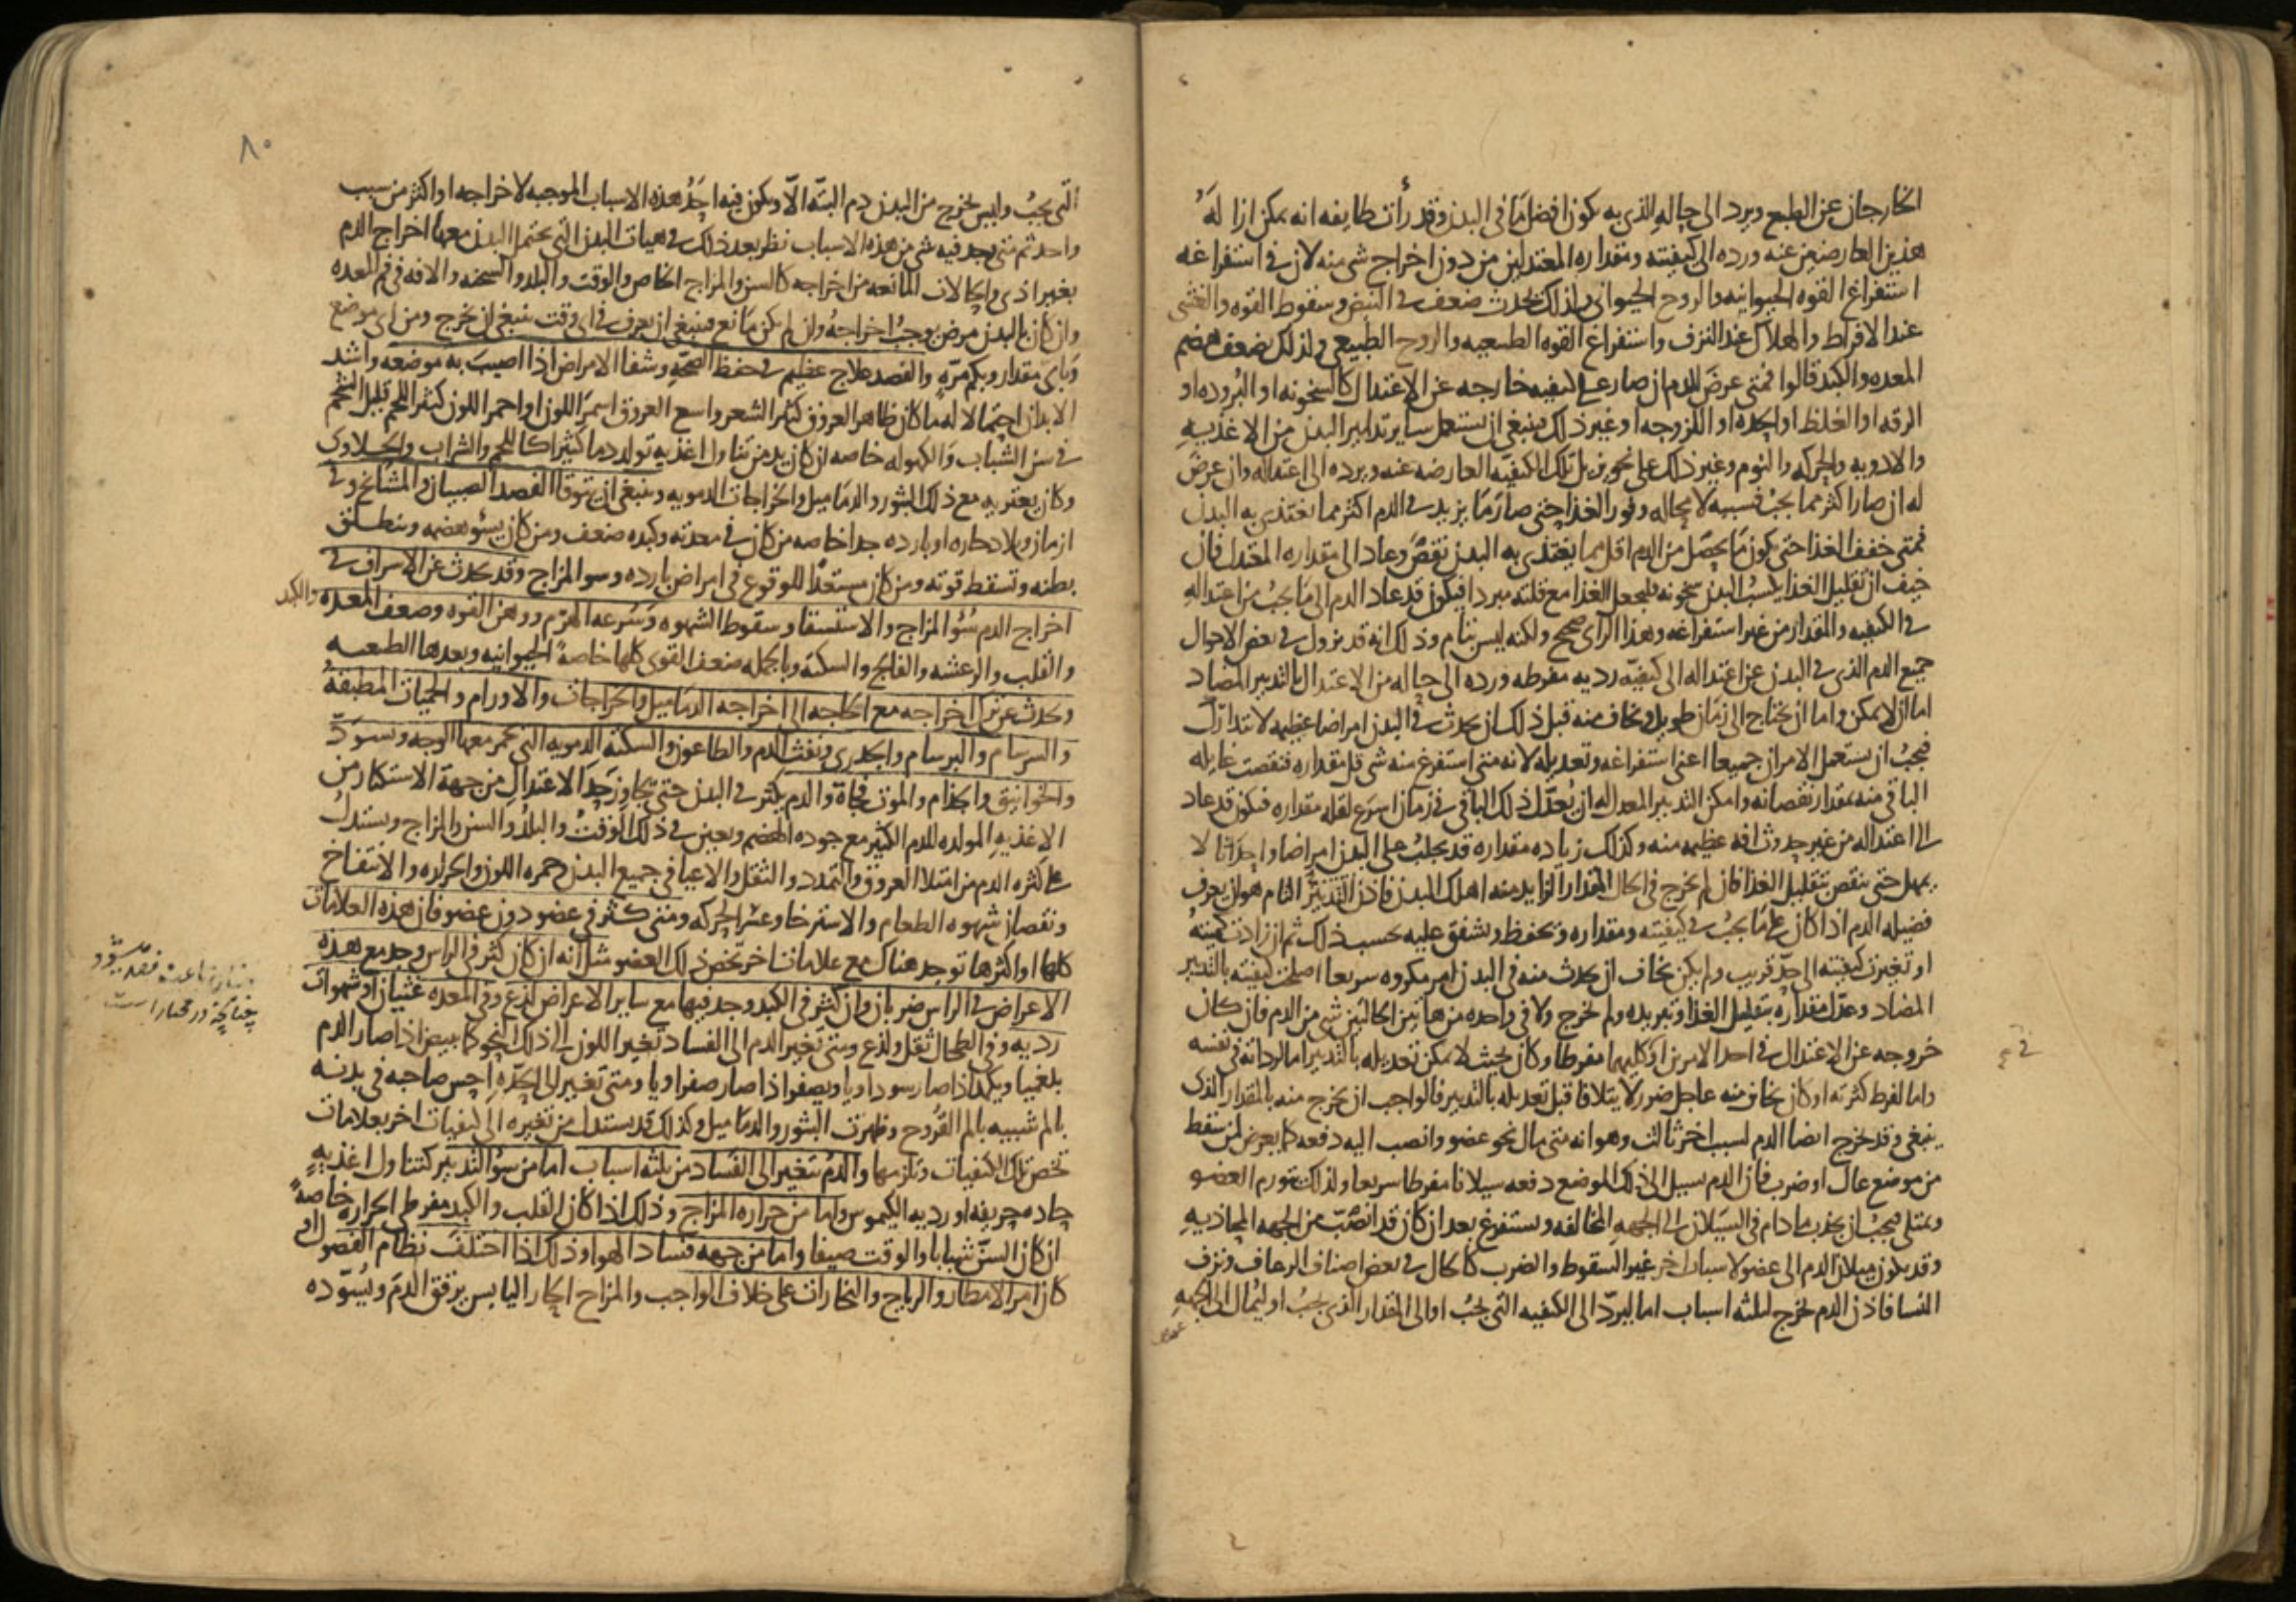 الخارجان عن الطبع ويرد الى حاله الذي به يكون افضل ما في البدن وقد رأت طايفه انه يمكن ازالة
هذين العارضين عنه ورده الى كيفيته ومقداره المعتدلين من دون اخراج شي منه لان في استفراغه
استفراغ القوه الحيوانيه والروح الحيواني ولذلك يحدث ضعف في النبض وسقوط القوه والغشى
عند الافراط والهلاك عند النزف واستفراغ القوه الطبيعيه والروح الطبيعي ولذلك يضعف هضم
المعده والكبد قالوا فمتى عرض للدم ان صار على كيفيه خارجه عن الاعتدال كالسخونه او البروده او
الرقه او الغلظ او الحده او اللزوجه او غير ذلك فينبغي ان يستعمل ساير تدابير البدن من الاغذيه
والادويه والحركه والنوم وغير ذلك على نحو يزيل تلك الكيفيه العارضه عنه ويرده الى اعتداله وان عرض
له ان صار اكثر مما يجب فسببه لا محاله وفور الغذا حتى صار ما يزيد في الدم اكثر مما يغتذي به البدن
فمتى خفف الغذا حتى يكون ما يحصل من الدم اقل مما يغتذي به البدن نقص وعاد الى مقداره المعتدل فان
خيف ان تقليل الغذا يكسب البدن سخونه فليجعل الغذا مع قلته مبردا فيكون قد عاد الدم الى ما يجب من اعتداله
في الكيفيه والمقدار من غير استفراغه وهذا الراي صحيح ولكنه ليس بتام وذلك انه قد يزول في بعض الاحوال
جميع الدم الذي في البدن عن اعتداله الى كيفيه رديه مفرطه ورده الى حاله من الاعتدال بالتدبير المضاد
اما ان لا يمكن واما ان يحتاج الى زمان طويل ويخاف منه قبل ذلك ان يحدث في البدن امراضا عظيمه لا تتدارك
فيجب ان يستعمل الامران جميعا اعني استفراغه وتعديله لانه متى استفرغ منه شي قل مقداره فنقصت غايله
الباقي منه بمقدار نقصانه وامكن التدبير المعدل له ان يعدل ذلك الباقي في زمان اسرع لقله مقداره فيكون قد عاد
الى اعتداله من غير حدوث افه عظيمه منه وكذلك زياده مقداره قد يجلب على البدن امراضا واحداثا لا
يمهل حتى ينقص بتقليل الغذا فان لم يخرج في الحال المقدار الزايد منه اهلك البدن فاذن التدبير التام هو ان يعرف
فضيله الدم اذا كان على ما يجب في كيفيته ومقداره ويحفظ ويشفق عليه بحسب ذلك ثم ان زادت كميته
او تغيرت كيفيته الى حد قريب ولم يكن يخاف ان يحدث منه في البدن امر مكروه سريعا اصلحت كيفيته بالتدبير
المضاد وعدل مقداره بتقليل الغذا وتبريده ولم يخرج ولا في واحده من هاتين الحالتين شي من الدم فان كان
خروجه عن الاعتدال في احد الامرين او كليهما مفرطا وكان بحيث لا يمكن تعديله بالتدبير اما لرداته في نفسه
واما لفرط كثرته او كان يخاف منه عاجل ضرر لا يتلافا قبل تعديله بالتدبير فالواجب ان يخرج منه بالمقدار الذي
ينبغي وقد يخرج ايضا الدم لسبب اخر ثالث وهو انه متى مال نحو عضو وانصب اليه دفعه كما يعرض لمن سقط
من موضع عال او ضرب فان الدم يسيل الى ذلك الموضع دفعه سيلانا مفرطا سريعا ولذلك يتورم العضو
ويمتلي فيجب ان يجذب ما دام في السيلان الى الجهه المخالفه ويستفرغ بعد ان كان قد انصب من الجهه المحاذيه
وقد يكون ميلان الدم الى عضو لاسباب اخر غير السقوط والضرب كالحال في بعض اصناف الرعاف ونزف
النسا فاذن الدم يخرج لثلثه اسباب اما ليرد الى الكيفيه التي يجب او الى المقدار الذي يجب او ليمال الى الجهه
٨٠
التي يجب وليس يخرج من البدن دم البته الا ويكون فيه احد هذه الاسباب الموجبه لاخراجه او اكثر من سبب
واحد ثم متى وجد فيه شي من هذه الاسباب نظر بعد ذلك في هيات البدن التي يحتمل البدن معها اخراج الدم
بغير اذى والحالات المانعه من اخراجه كالسن والمزاج الخاص والوقت والبلد والسحنه والافه في فم المعده
وان كان بالبدن مرض يوجب اخراجه وان لم يكن مانع فينبغي ان يعرف في اي وقت ينبغي ان يخرج ومن اي موضع
وباي مقدار وبكم مره والفصد علاج عظيم في حفظ الصحه وشفا الامراض اذا اصيب به موضعه واشد
الابدان احتمالا له ما كان ظاهر العروق كثير الشعر واسع العروق اسمر اللون او احمر اللون كثير اللحم قليل الشحم
في سن الشباب والكهوله خاصه ان كان يدمن تناول اغذيه تولد دما كثيرا كاللحم والشراب والحلاوى
وكان يعتريه مع ذلك البثور والدماميل والخراجات الدمويه وينبغي ان يتوقا الفصد الصبيان والمشائخ وفي
ازمان وبلاد حاره او بارده جدا خاصه من كان في معدته وكبده ضعف ومن كان يسئو هضمه وينطلق
بطنه وتسقط قوته ومن كان مستعدا للوقوع في امراض بارده وسو المزاج وقد يحدث عن الاسراف في
اخراج الدم سُؤ المزاج والاستسقا وسقوط الشهوه وسرعه الهرم ووهن القوه وضعف المعده والكبد
والقلب والرعشه والفالج والسكته وبالجمله ضعف القوى كلها خاصةً الحيوانيه وبعدها الطبيعيه
ويحدث عن ترك اخراجه مع الحاجه الى اخراجه الدماميل والخراجات والاورام والحميات المطبقة
والسرسام والبرسام والجدري ونفث الدم والطاعون والسكته الدمويه التي يحمر معها الوجه ويسودّ
والخوانيق والجذام والموت فجاة والدم يكثر في البدن حتى يجاوز حد الاعتدال من جهة الاستكثار من
الاغذيه المولده للدم الكثير مع جوده الهضم ويعين في ذلك الوقت والبلد والسن والمزاج ويستدل
على كثره الدم من امتلا العروق والتمدد والثقل والاعيا في جميع البدن وحمره اللون والحراره والانتفاخ
ونقصان شهوه الطعام والاسترخا وعسر الحركه ومتى كثر في عضو دون عضو فان هذه العلامات
كلها او اكثرها توجد هناك مع علامات اخر تخص ذلك العضو مثل انه ان كان كثر في الراس وجد مع هذه
الاعراض في الراس ضربان وان كثر في الكبد وجد فيها مع ساير الاعراض لذع وفي المعده غثيان او شهوات
رديه وفي الطحال ثقل ولذع ومتى تغير الدم الى الفساد تغير اللون الى ذلك النحو كما يبيض اذا صار الدم
بلغميا ويكمد اذا صار سوداويا ويصفر اذا صار صفراويا ومتى تغير الى الحده احس صاحبه في بدنه
بالم شبيه بالم القروح وظهرت البثور والدماميل وكذلك قد يستدل من تغيره الى كيفيات اخر بعلامات
تخص تلك الكيفيات وتلزمها والدم يتغير الى الفساد من ثلثه اسباب اما من سؤ التدبير كتناول اغذيه
حاده حريفه او رديه الكيموس واما من حراره المزاج وذلك اذا كان القلب والكبد مفرطي الحراره خاصةً
ان كان السن شبابا والوقت صيفا واما من جهه فساد الهوا وذلك اذا اختلف نظام الفصول او
كان امر الامطار والرياح والبخارات على خلاف الواجب والمزاج الحار اليابس يرقق الدم ويسوده